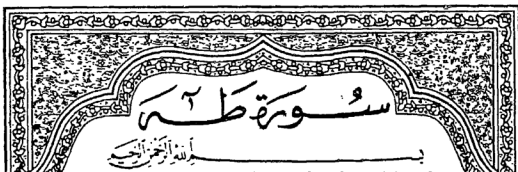 سُورَة طٓهَ
بِسْمِ اللَّهِ الرَّحْمَٰنِ الرَّحِيمِ